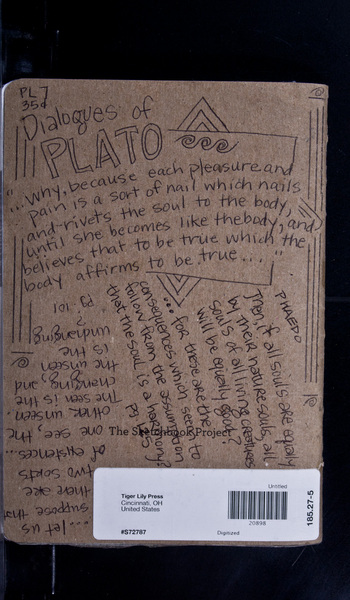 PL7
35d
Dialogues of
PLATO
"...Why, because each pleasure and
pain is a sort of nail which nails
and rivets the soul to the body,
until she becomes like the body, and
believes that to be true which the
body affirms to be true..."
PHAEDO
Then, if all souls are equally
by their nature souls, all
souls of all living creatures
will be equally good?
... for these are the
consequences which seem to
follow from the assumption
that the soul is a harmony?
...let us
suppose that
there are
two sorts
of existences...
one see, the
other unseen.
The seen is the
changing, and
the unseen
is the
unchanging
?
pg. 101
The Sketchbook Project
Tiger Lily Press
Cincinnati, OH
United States
#S72787
Untitled
20898
Digitized
185.27-5